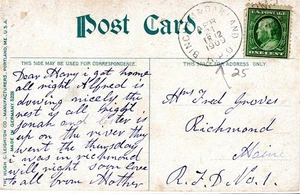 Post Card
THIS SIDE MAY BE USED FOR CORRESPONDENCE.
THIS SIDE IS FOR THE ADDRESS.
THE HUGH C. LEIGHTON CO., MANUFACTURERS, PORTLAND, ME., U.S.A.
MADE OF GERMANY
APR
12
1909
ONE CENT
25
Dear Hany i got home
all night Alfred is
doing nicely the
rest is all right
Jonah and are
up on the river they
went thursday
i was in richmond
will night soon love
all from Mother
Mrs Fred Groves
Richmond
Maine
R.F.D. No. 1.